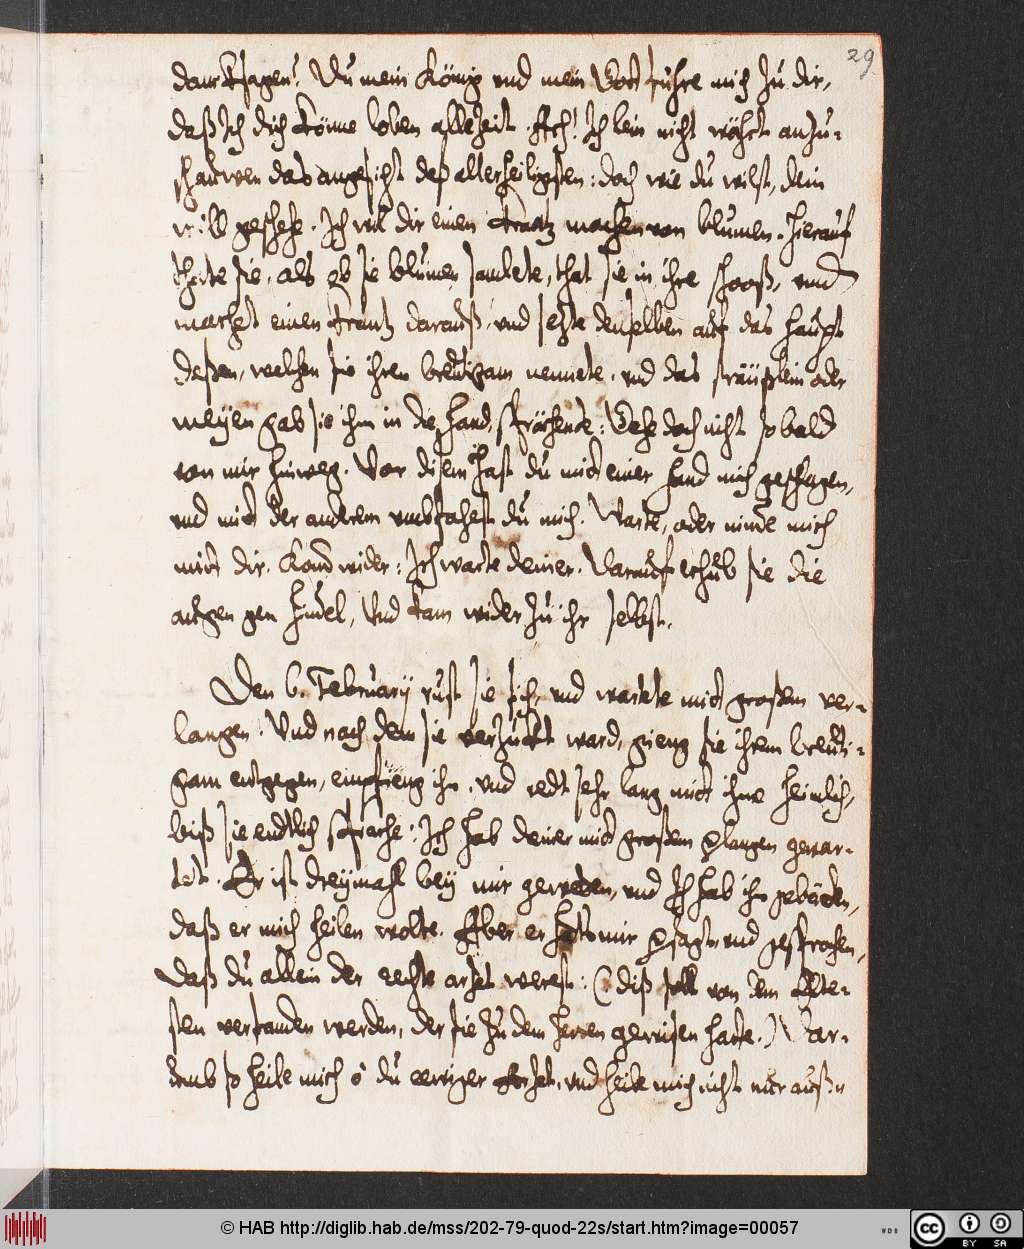 29
danckſagen! Du mein König vnd mein Gott führe mich zu dir,
daß Ich dich könne loben allezeit. Ach! Ich bin nicht währt anzu-
ſchauwen das angeſicht deß allerheiligſten: doch wie du wilſt, dein
will geſchehe. Ich wil dir einen krantz machen von blumen. Hierauf
thate ſie, als ob ſie blumen ſamlete, that ſie in ihre ſchooß, vnd
machet einen krantz darauß, vnd ſetzte denſelben auf das haupt
deßen, welchen ſie ihren breütigam nennete, vnd das ſträüßlein oder
meyen gab ſie ihm in die hand, ſprächende: Gehe doch nicht ſo bald
von mir hinweg. Vor diſem haſt du mit einer hand mich geſchlagen,
vnd mit der anderen vmbfaheſt du mich. Warte, oder nimme mich
mit dir. Kom wider: Ich warte deiner. Darauf erhub ſie die
augen gen himel, Vnd kam wider zu ihr ſelbſt.
Den 6. February ruſt ſie ſich, vnd wartete mit großem ver-
langen. Vnd nach dem ſie verzuckt ward, gieng ſie ihrem breüti-
gam entgegen, empfieng ihn, vnd redt ſehr lang mit ihme heimlich,
biß ſie endtlich ſprache: Ich hab deiner mit großem verlangen gewar-
tet. Er iſt dreymahl bey mir geweßen, vnd Ich hab ihn gebäten,
daß er mich heilen wolte. Aber er hats mir verſagt vnd geſprochen,
daß du allein der rechte artzet wereſt: (diß ſoll von dem Elte-
ſten verſtanden werden, der ſie zu dem herren gewiſen hatte.) War-
vmb ſo heile mich ô du eewiger Artzet, vnd heile mich nicht nur auße
© HAB http://diglib.hab.de/mss/202-79-quod-22s/start.htm?image=00057
WDB
cc BY SA